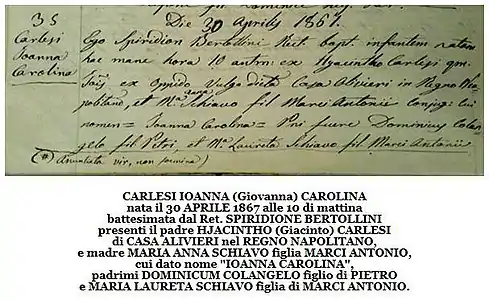 35
Carlesi
Joanna
Carolina
Die 30 Aprilis 1867.
Ego Spiridion Bertollini Rect. bapt. infantem natam
hac mane hora 10 antm: ex Hyacintho Carlesi qm.
Jois ex Oppido Vulgo dicto Casa Alivieri in Regno Nea
politano, et Ma Anna Schiavo fil Marci Antonii conjug: cui
nomen = Joanna Carolina = Pni fuere Dominicus Colan
gelo fil Petri, et Ma Laureta Schiavo fil Marci Antonii
CARLESI IOANNA (Giovanna) CAROLINA
nata il 30 APRILE 1867 alle 10 di mattina
battesimata dal Ret. SPIRIDIONE BERTOLLINI
presenti il padre HJACINTHO (Giacinto) CARLESI
di CASA ALIVIERI nel REGNO NAPOLITANO,
e madre MARIA ANNA SCHIAVO figlia MARCI ANTONIO,
cui dato nome "IOANNA CAROLINA",
padrimi DOMINICUM COLANGELO figlio di PIETRO
e MARIA LAURETA SCHIAVO figlia di MARCI ANTONIO.